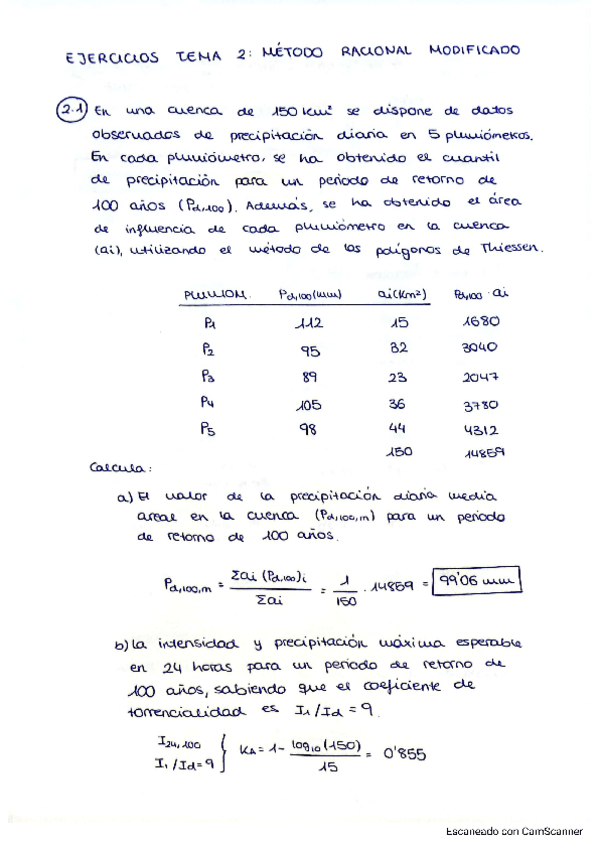 EJERCICIOS TEMA 2: MÉTODO RACIONAL MODIFICADO
2.1 En una cuenca de 150 km² se dispone de datos
observados de precipitación diaria en 5 pluviómetros.
En cada pluviómetro, se ha obtenido el cuantil
de precipitación para un periodo de retorno de
100 años (Pd,100). Además, se ha obtenido el área
de influencia de cada pluviómetro en la cuenca
(ai), utilizando el método de los polígonos de Thiessen.
PLUVIOM. Pd,100(mm) ai(Km²) Pd,100 · ai
P1 112 15 1680
P2 95 32 3040
P3 89 23 2047
P4 105 36 3780
P5 98 44 4312
150 14859
Calcula:
a) El valor de la precipitación diaria media
areal en la cuenca (Pd,100,m) para un periodo
de retorno de 100 años.
Pd,100,m = Σai (Pd,100)i / Σai = 1/150 · 14859 = 99'06 mm
b) La intensidad y precipitación máxima esperable
en 24 horas para un periodo de retorno de
100 años, sabiendo que el coeficiente de
torrencialidad es I1/Id = 9.
I24,100
I1/Id=9 } KA = 1- log10(150)/15 = 0'855
Escaneado con CamScanner